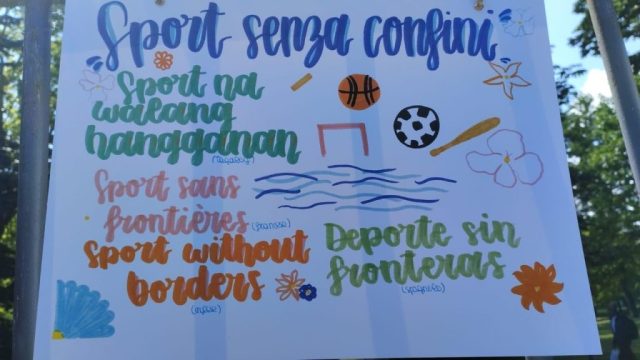 Sport senza confini
Sport na
walang
hangganan
Sport sans
frontières
Sport without
borders
Deporte sin
fronteras